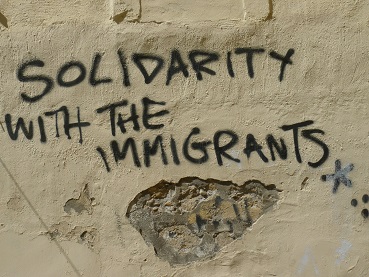 SOLIDARITY
WITH THE
IMMIGRANTS